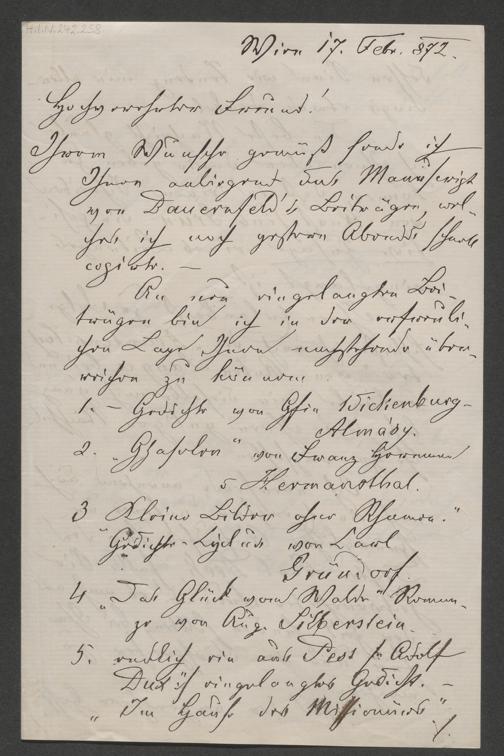 H.I.N. 242.258
Wien 17. Febr. 872.
Hochverehrter Freund!
Ihrem Wunsche gemäß sende ich
Ihnen anliegend das Manuscript
von Bauernfeld's Beiträgen, wel-
ches ich noch gestern Abends schnell
copirte. —
An neu eingelangten Bei-
trägen bin ich in der erfreuli-
chen Lage Ihnen nachstehende über-
reichen zu können
1. – Gedichte von Gfin Wickenburg-
Almásy.
2. „Ghaselen" von Franz Hermann
v Hermannsthal.
3 Kleine Bilder ohne Rahmen."
"Gedichte-Cyclus von Carl
Gründorf.
4 „Das Glück vom Walde" Roman-
ze von Aug. Silberstein.
5. endlich ein aus Pest v. Adolf
Dux eingelangtes Gedicht. —
„Im Hause des Missionärs"
./.